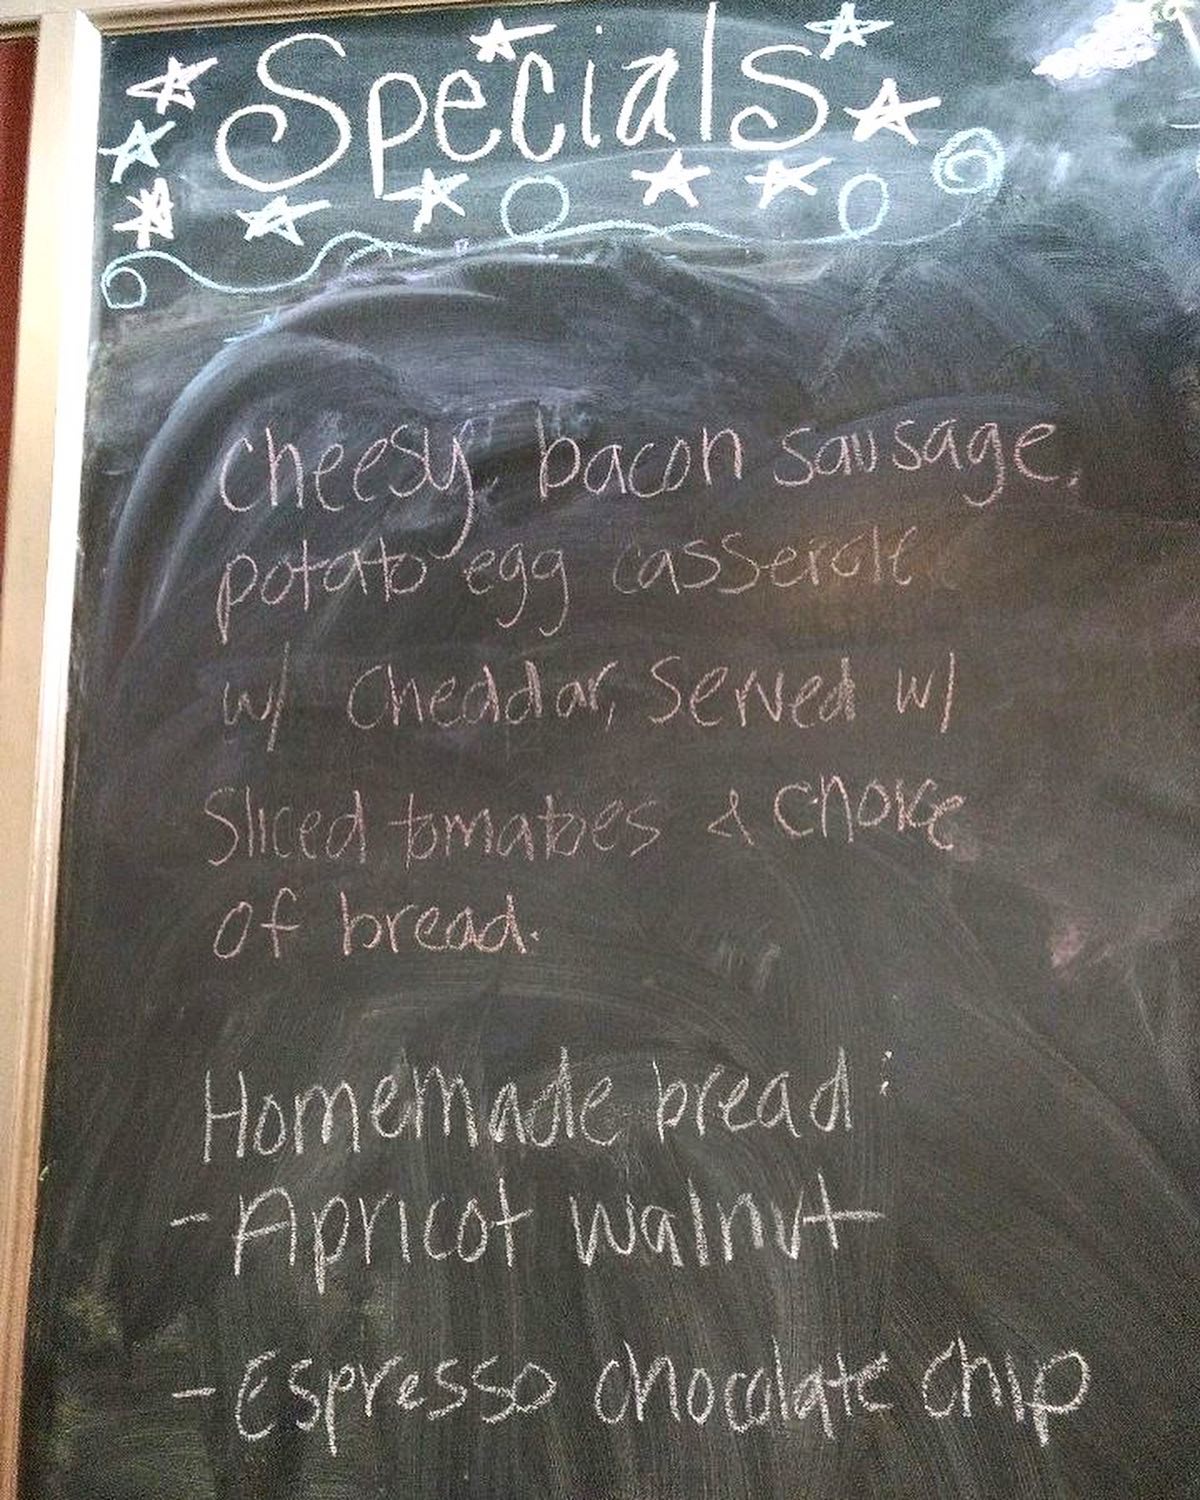 Specials
cheesy bacon sausage,
potato egg casserole
w/ cheddar, served w/
Sliced tomatoes & choice
of bread.
Homemade bread:
- Apricot walnut
- Espresso chocolate chip